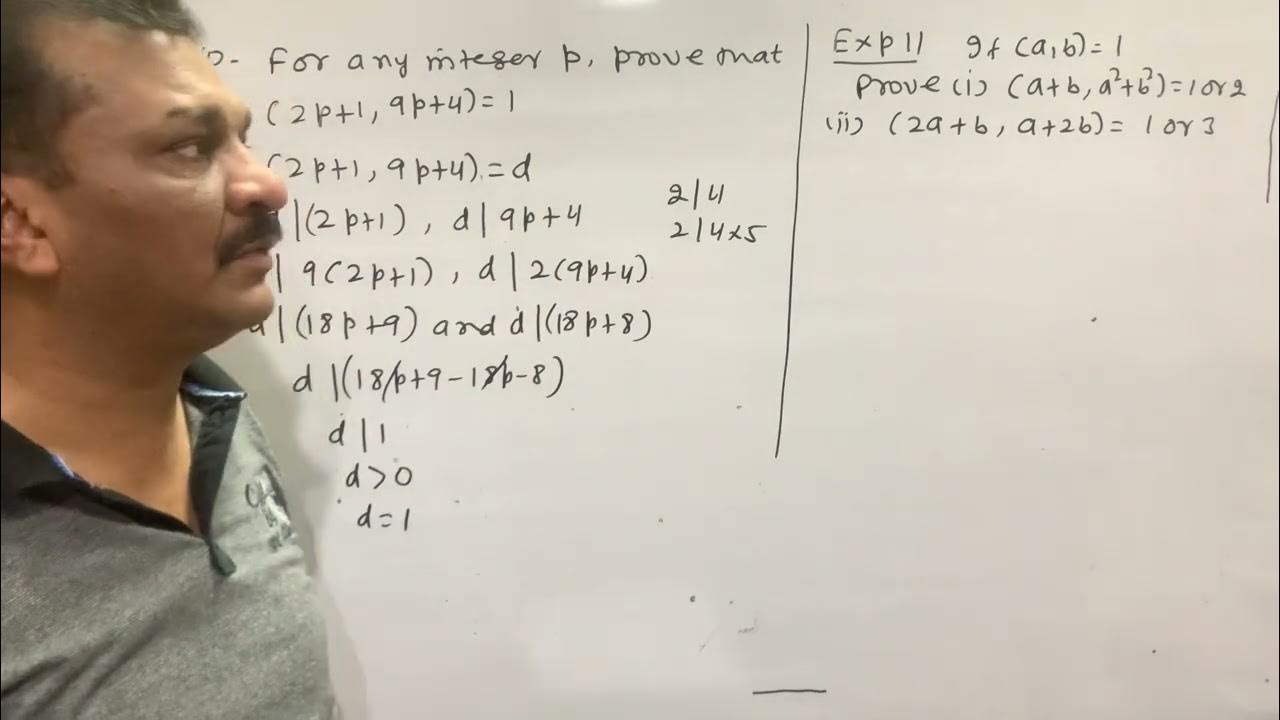 0- For any integer p, prove that
(2p+1, 9p+4)=1
(2p+1, 9p+4)=d
|(2p+1), d|9p+4
| 9(2p+1), d|2(9p+4)
d|(18p+9) and d|(18p+8)
d|(18p+9-18p-8)
d|1
d>0
d=1
2|4
2|4×5
Exp 11 If (a,b)=1
Prove (i) (a+b, a²+b²)=1 or 2
(ii) (2a+b, a+2b)= 1 or 3